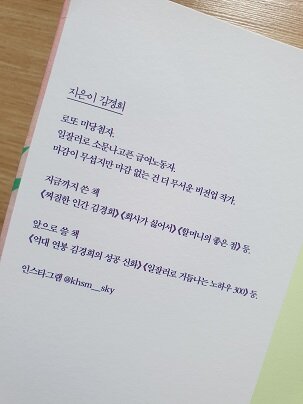 지은이 김경희
로또 미당첨자.
일잘러로 소문나고픈 급여노동자.
마감이 무섭지만 마감 없는 건 더 무서운 비전업 작가.
지금까지 쓴 책
《찌질한 인간 김경희》《회사가 싫어서》《할머니의 좋은 점》 등.
앞으로 쓸 책
《억대 연봉 김경희의 성공 신화》《일잘러로 거듭나는 노하우 300》 등.
인스타그램 @khsm__sky